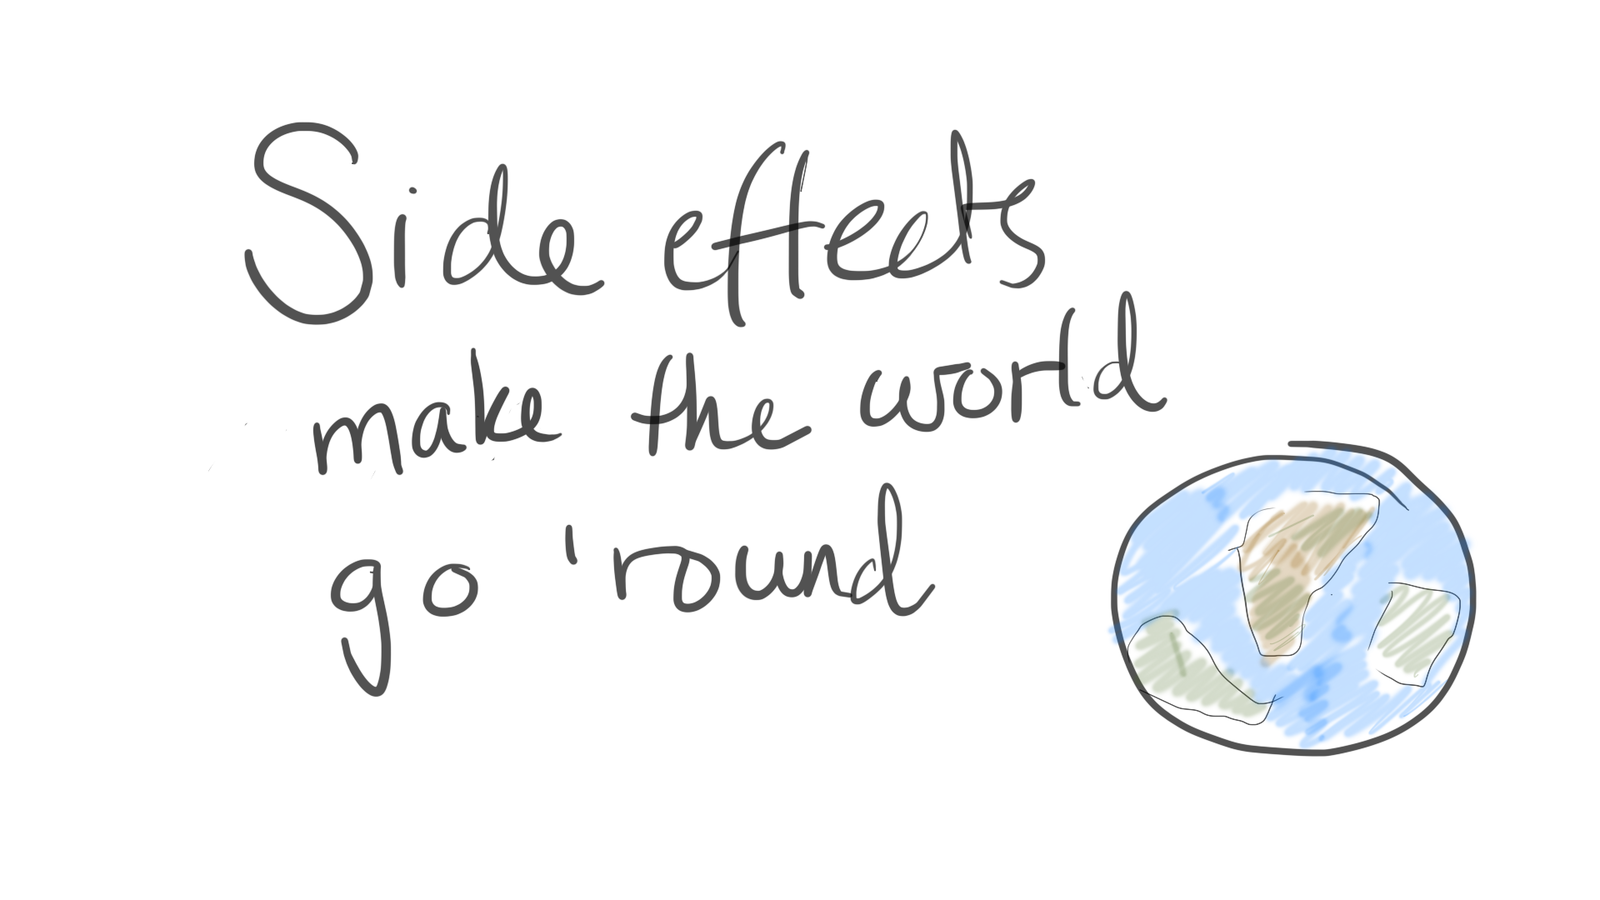 Side effects
make the world
go 'round